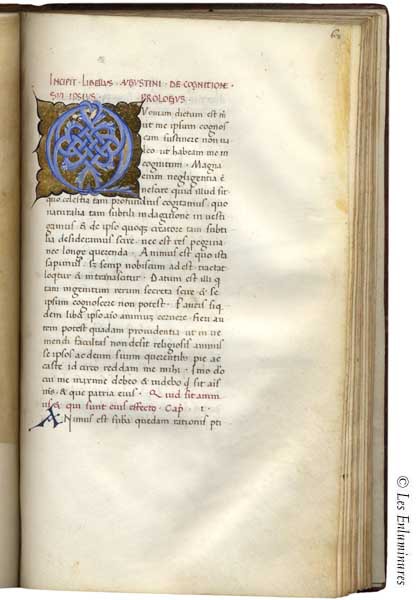 INCIPIT · LIBELLVS · AVGVSTINI · DE · COGNITIONE ·
SVI IPSIVS · PROLOGVS ·
QVoniam dictum est m̄
ut me ipsum cognos
cam sustinere non ua
leo ut habeam me in
cognitum · Magna
enim negligentia ē
nescire quid illud sit
quo celestia tam cogitamus quo
naturalia tam subtili indagatione in uesti
gamus & de ipso creatore tam subti
lia desideramus scire · nec est res pegrina
nec longe querenda · Animus est quo ista
sapimus · semp nobiscum ad est · tractat
loqtur & intranascitur · Datum est illi
tam ingentium rerum secreta scire & se
ipsum cognoscere non potest · Paucis
dem libet ipso aīo animum cernere · fieri au
tem potest quadam prouidentia ut inue
niendi facultas non desit religiosis animis
se ipsos ac deum suum querentibus pie ac
caste id circo reddam me mihi · Imo do
cui me maxime debeo & uidebo q̄ sit aīs
ms̄ & que patria eius · Quid sit anim
us & qui sunt eius effecto · Cap · i ·
ANimus est suba quedam rationis pti
© Les Enluminures